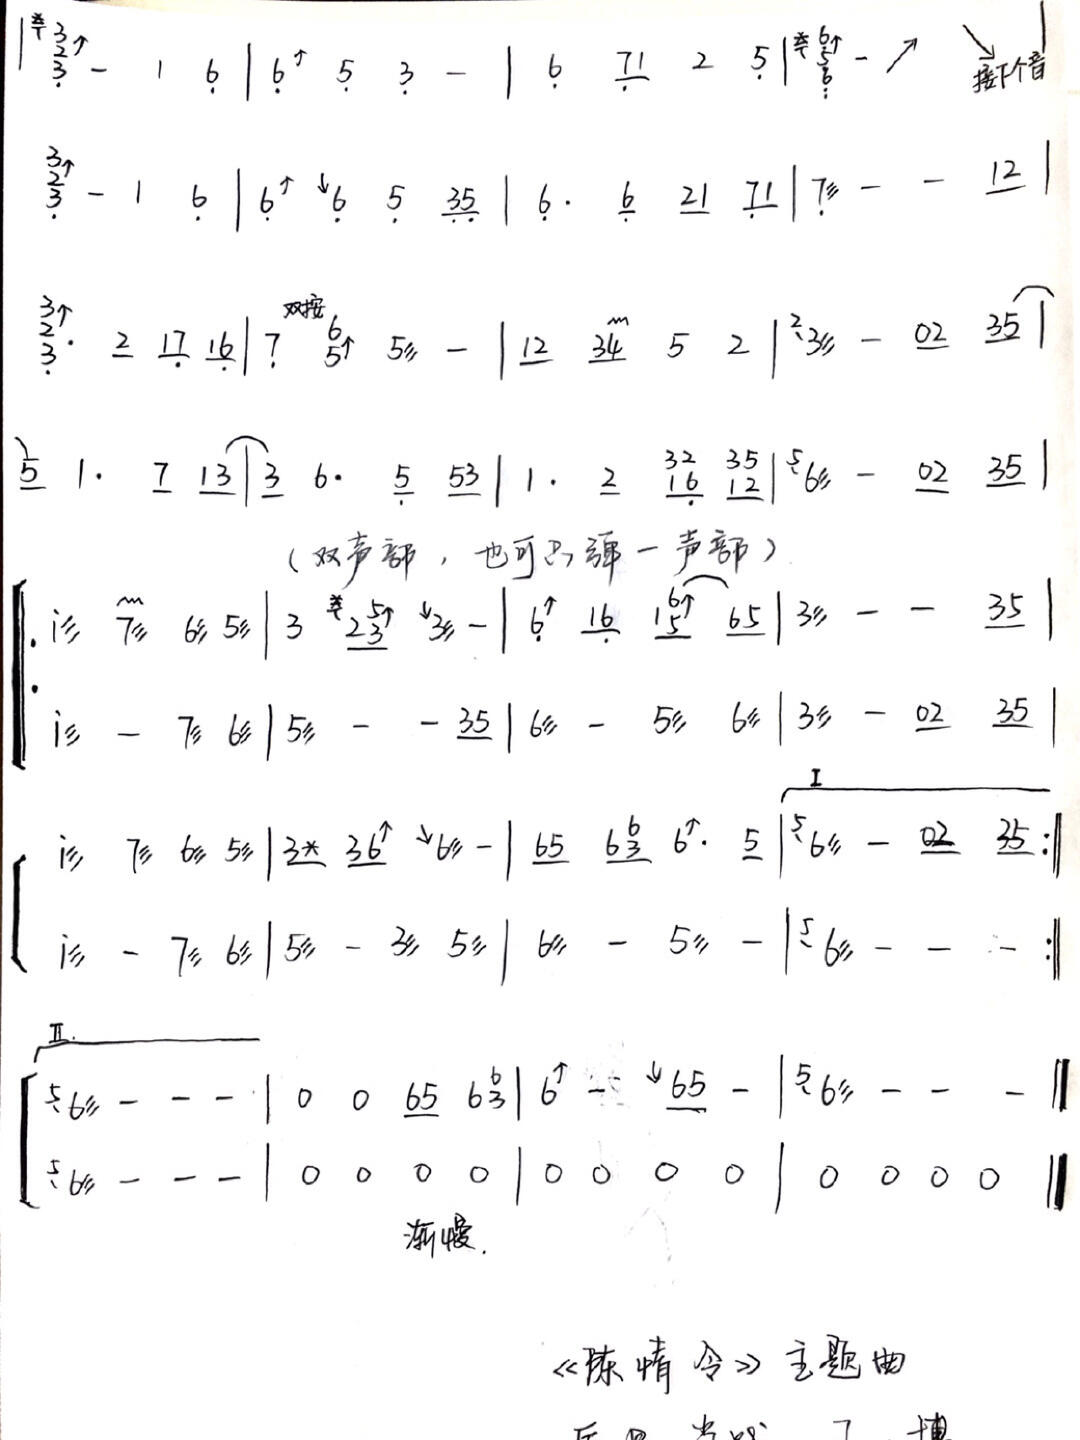 3 2 3 ↑ - 1 6 | 6 ↑ 5 3 - | 6 71 2 5 | 6 5 6 ↑ - ↗ ↘ 接下个音
3 2 3 ↑ - 1 6 | 6 ↑ ↓ 6 5 35 | 6 · 6 21 71 | 7 - - 12 |
双按
3 2 3 ↑ · 2 17 16 | 7 6 5 ↑ 5 - | 12 34 5 2 | 2 3 - 02 35 |
5 1 · 7 13 | 3 6 · 5 53 | 1 · 2 32 16 35 12 | 5 6 - 02 35 |
(双声部,也可只弹一声部)
i 7 6 5 | 3 2 5 3 ↑ ↓ 3 - | 6 ↑ 16 1 6 5 ↑ 65 | 3 - - 35 |
i - 7 6 | 5 - - 35 | 6 - 5 6 | 3 - 02 35 |
I
i 7 6 5 | 3* 36 ↑ ↓ 6 - | 65 6 6 3 6 ↑ · 5 | 5 6 - 02 35 :||
i - 7 6 | 5 - 3 5 | 6 - 5 - | 5 6 - - - :||
II.
5 6 - - - | 0 0 65 6 6 3 | 6 ↑ - ↓ 65 - | 5 6 - - - ||
5 6 - - - | 0 0 0 0 | 0 0 0 0 | 0 0 0 0 ||
渐慢.
《陈情令》主题曲